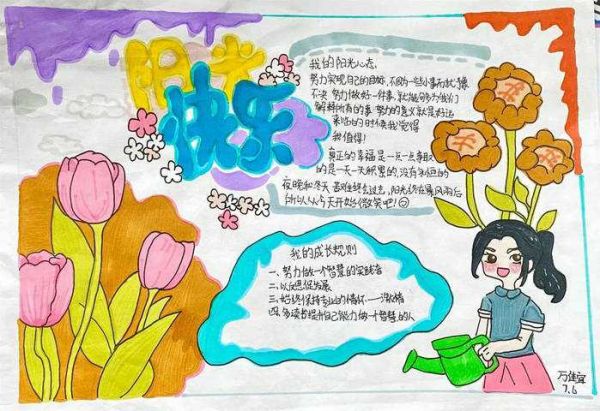 阳光
快乐
我的阳光心态
努力实现自己的目标，不因为一些小事而犹豫
不决 努力做好一件事，就能够多为我们
解释所有的事 努力的意义就是好运
来临的时候我觉得
我值得！
真正的幸福是一点一点争取
的是一天一天积累的，没有永恒的
夜晚和冬天 苦难终会过去，阳光总在暴风雨后
所以从今天开始微笑吧！
我的成长规则
一、努力做一个智慧的实践者
二、以反思促发展
三、始终保持专业的情怀——激情
四、多读书提升自己能力做一个智慧的人
万佳宜
7.6